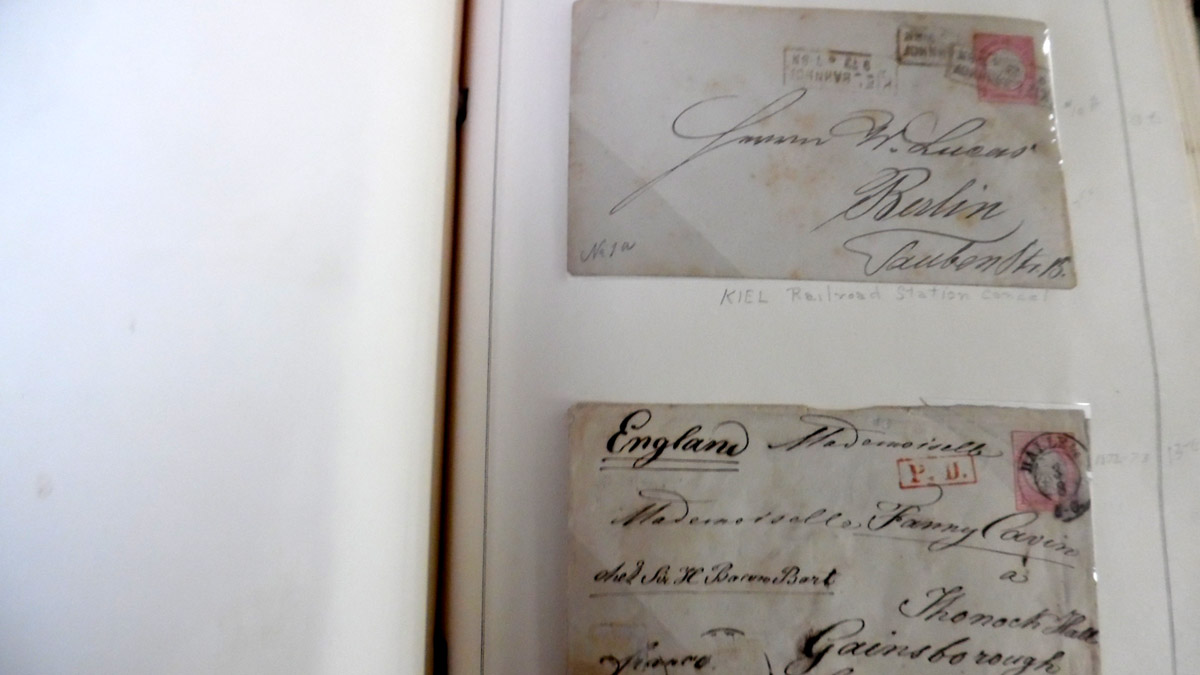 KIEL BAHNHOF
Herrn W. Lucas
Berlin
Taubenstr. 18.
KIEL Railroad Station cancel
England Mademoiselle
P.D.
HALLE
Mademoiselle Fanny Cavin
à
chez Sir H Bacon Bart
Thonock Hall
Gainsborough
franco.